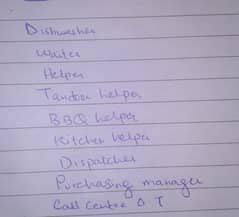 Dishwasher
Waiter
Helper
Tandoor helper
BBQ helper
Kitchen helper
Dispatcher
Purchasing manager
Call Centre O. T